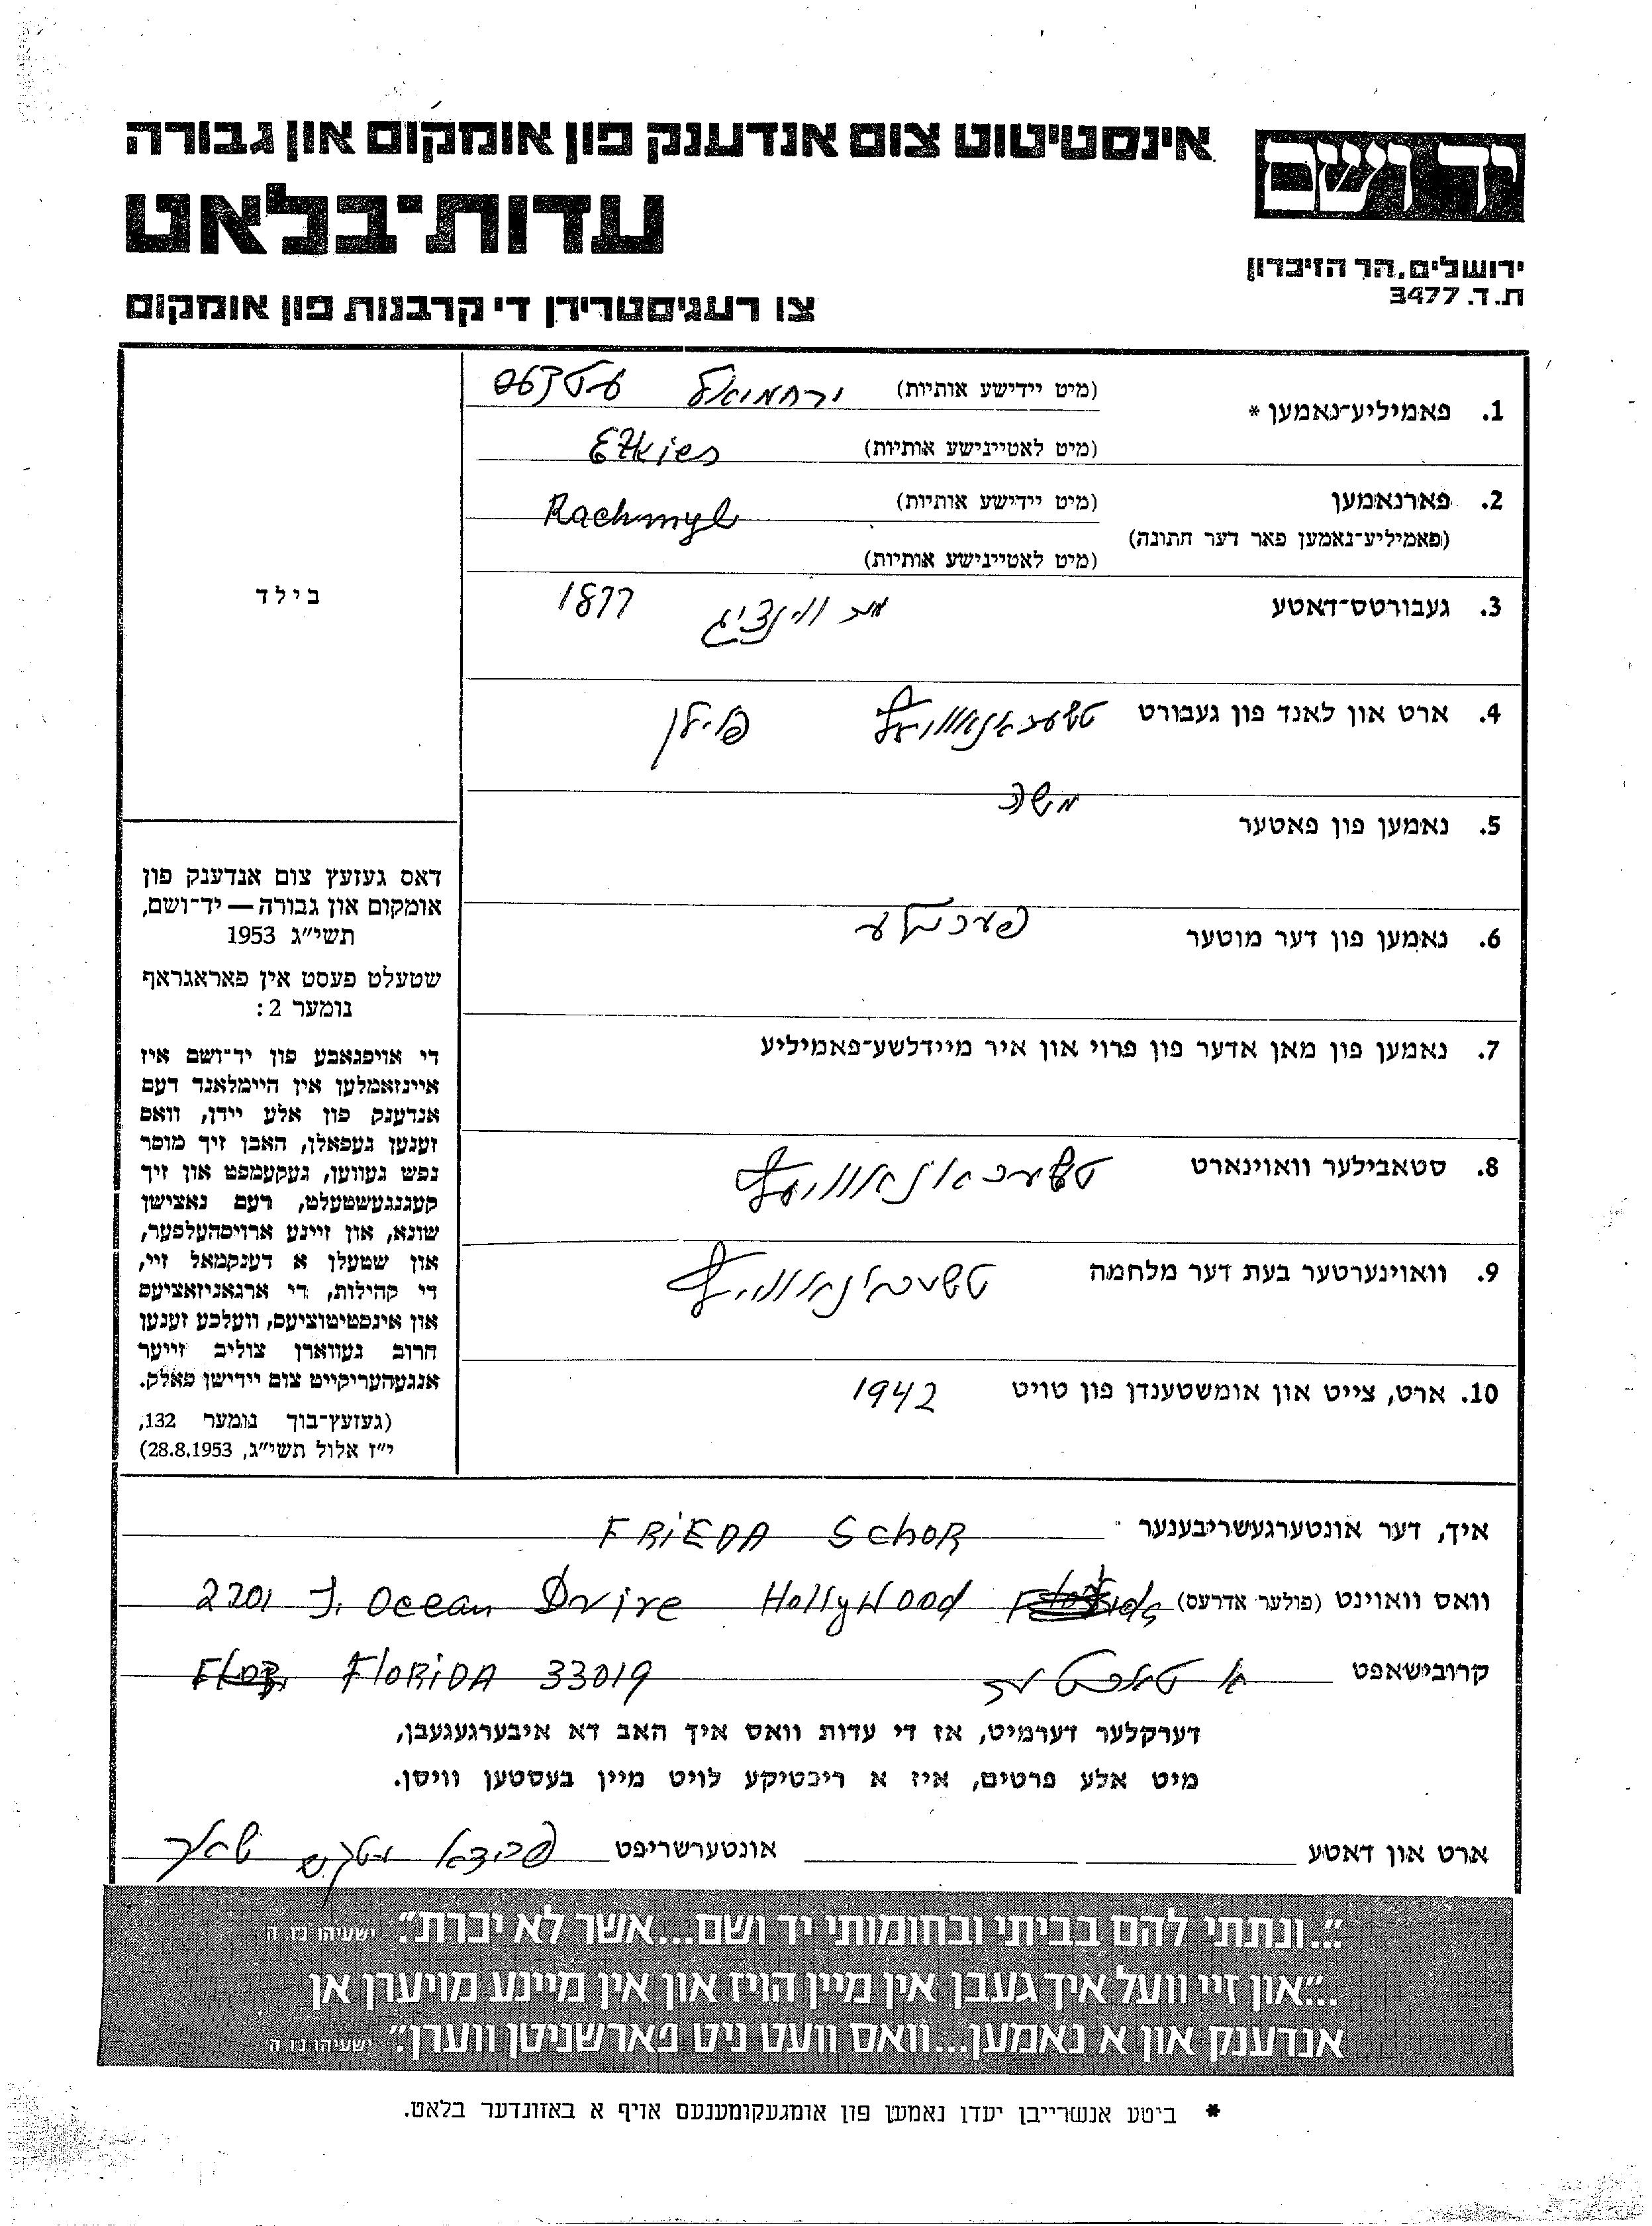 אינסטיטוט צום אנדענק פון אומקום און גבורה
יד ושם
עדות־בלאט
ירושלים, הר הזיכרון
ת. ד. 3477
צו רעגיסטרירן די קרבנות פון אומקום
1. פאמיליע־נאמען * (מיט יידישע אותיות) ירחמיאל
(מיט לאטיינישע אותיות) Etkies
2. פארנאמען (מיט יידישע אותיות) Rachmyl
(פאמיליע־נאמען פאר דער חתונה)
(מיט לאטיינישע אותיות)
3. געבורטס־דאטע 1877
4. ארט און לאנד פון געבורט פוילן
5. נאמען פון פאטער משה
6. נאמען פון דער מוטער
7. נאמען פון מאן אדער פון פרוי און איר מיידלשע־פאמיליע
8. סטאבילער וואוינארט
9. וואוינערטער בעת דער מלחמה
10. ארט, צייט און אומשטענדן פון טויט 1942
בילד
דאס געזעץ צום אנדענק פון
אומקום און גבורה — יד־ושם,
תשי״ג 1953
שטעלט פעסט אין פאראגראף
נומער 2:
די אויפגאבע פון יד־ושם איז
איינזאמלען אין היימלאנד דעם
אנדענק פון אלע יידן, וואס
זענען געפאלן, האבן זיך מוסר
נפש געווען, געקעמפט און זיך
קעגנגעשטעלט, דעם נאצישן
שונא, און זיינע ארויסהעלפער,
און שטעלן א דענקמאל זיי,
די קהילות, די ארגאניזאציעס
און אינסטיטוציעס, וועלכע זענען
חרוב געווארן צוליב זייער
אנגעהעריקייט צום יידישן פאלק.
(געזעץ־בוך נומער 132,
י״ז אלול תשי״ג, 28.8.1953)
איך, דער אונטערגעשריבענער FRiEDA SchoR
וואס וואוינט (פולער אדרעס) 2201 S. Ocean Drive HollyWood
קרובישאפט FloRiDA 33019
דערקלער דערמיט, אז די עדות וואס איך האב דא איבערגעגעבן,
מיט אלע פרטים, איז א ריכטיקע לויט מיין בעסטען וויסן.
ארט און דאטע אונטערשריפט
"...ונתתי להם בביתי ובחומותי יד ושם...אשר לא יכרת". ישעיהו נו. ה
..."און זיי וועל איך געבן אין מיין הויז און אין מיינע מויערן אן
אנדענק און א נאמען...וואס וועט ניט פארשניטן ווערן". ישעיהו נו. ה
* ביטע אנשרייבן יעדן נאמען פון אומגעקומענעם אויף א באזונדער בלאט.